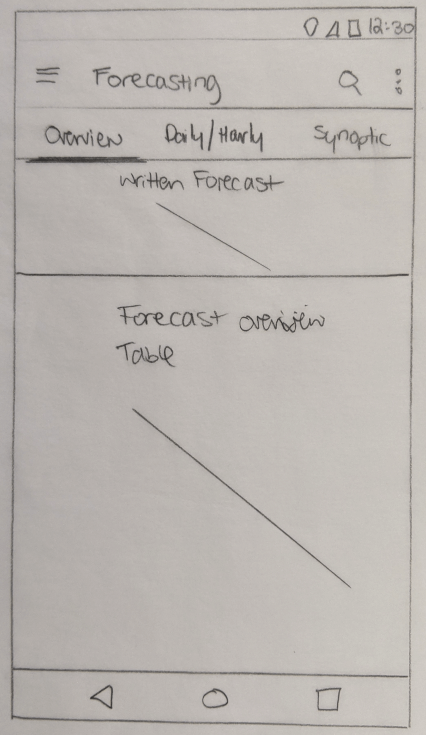 12:30
Forecasting
Overview Daily/Hourly Synoptic
Written Forecast
Forecast overview
Table